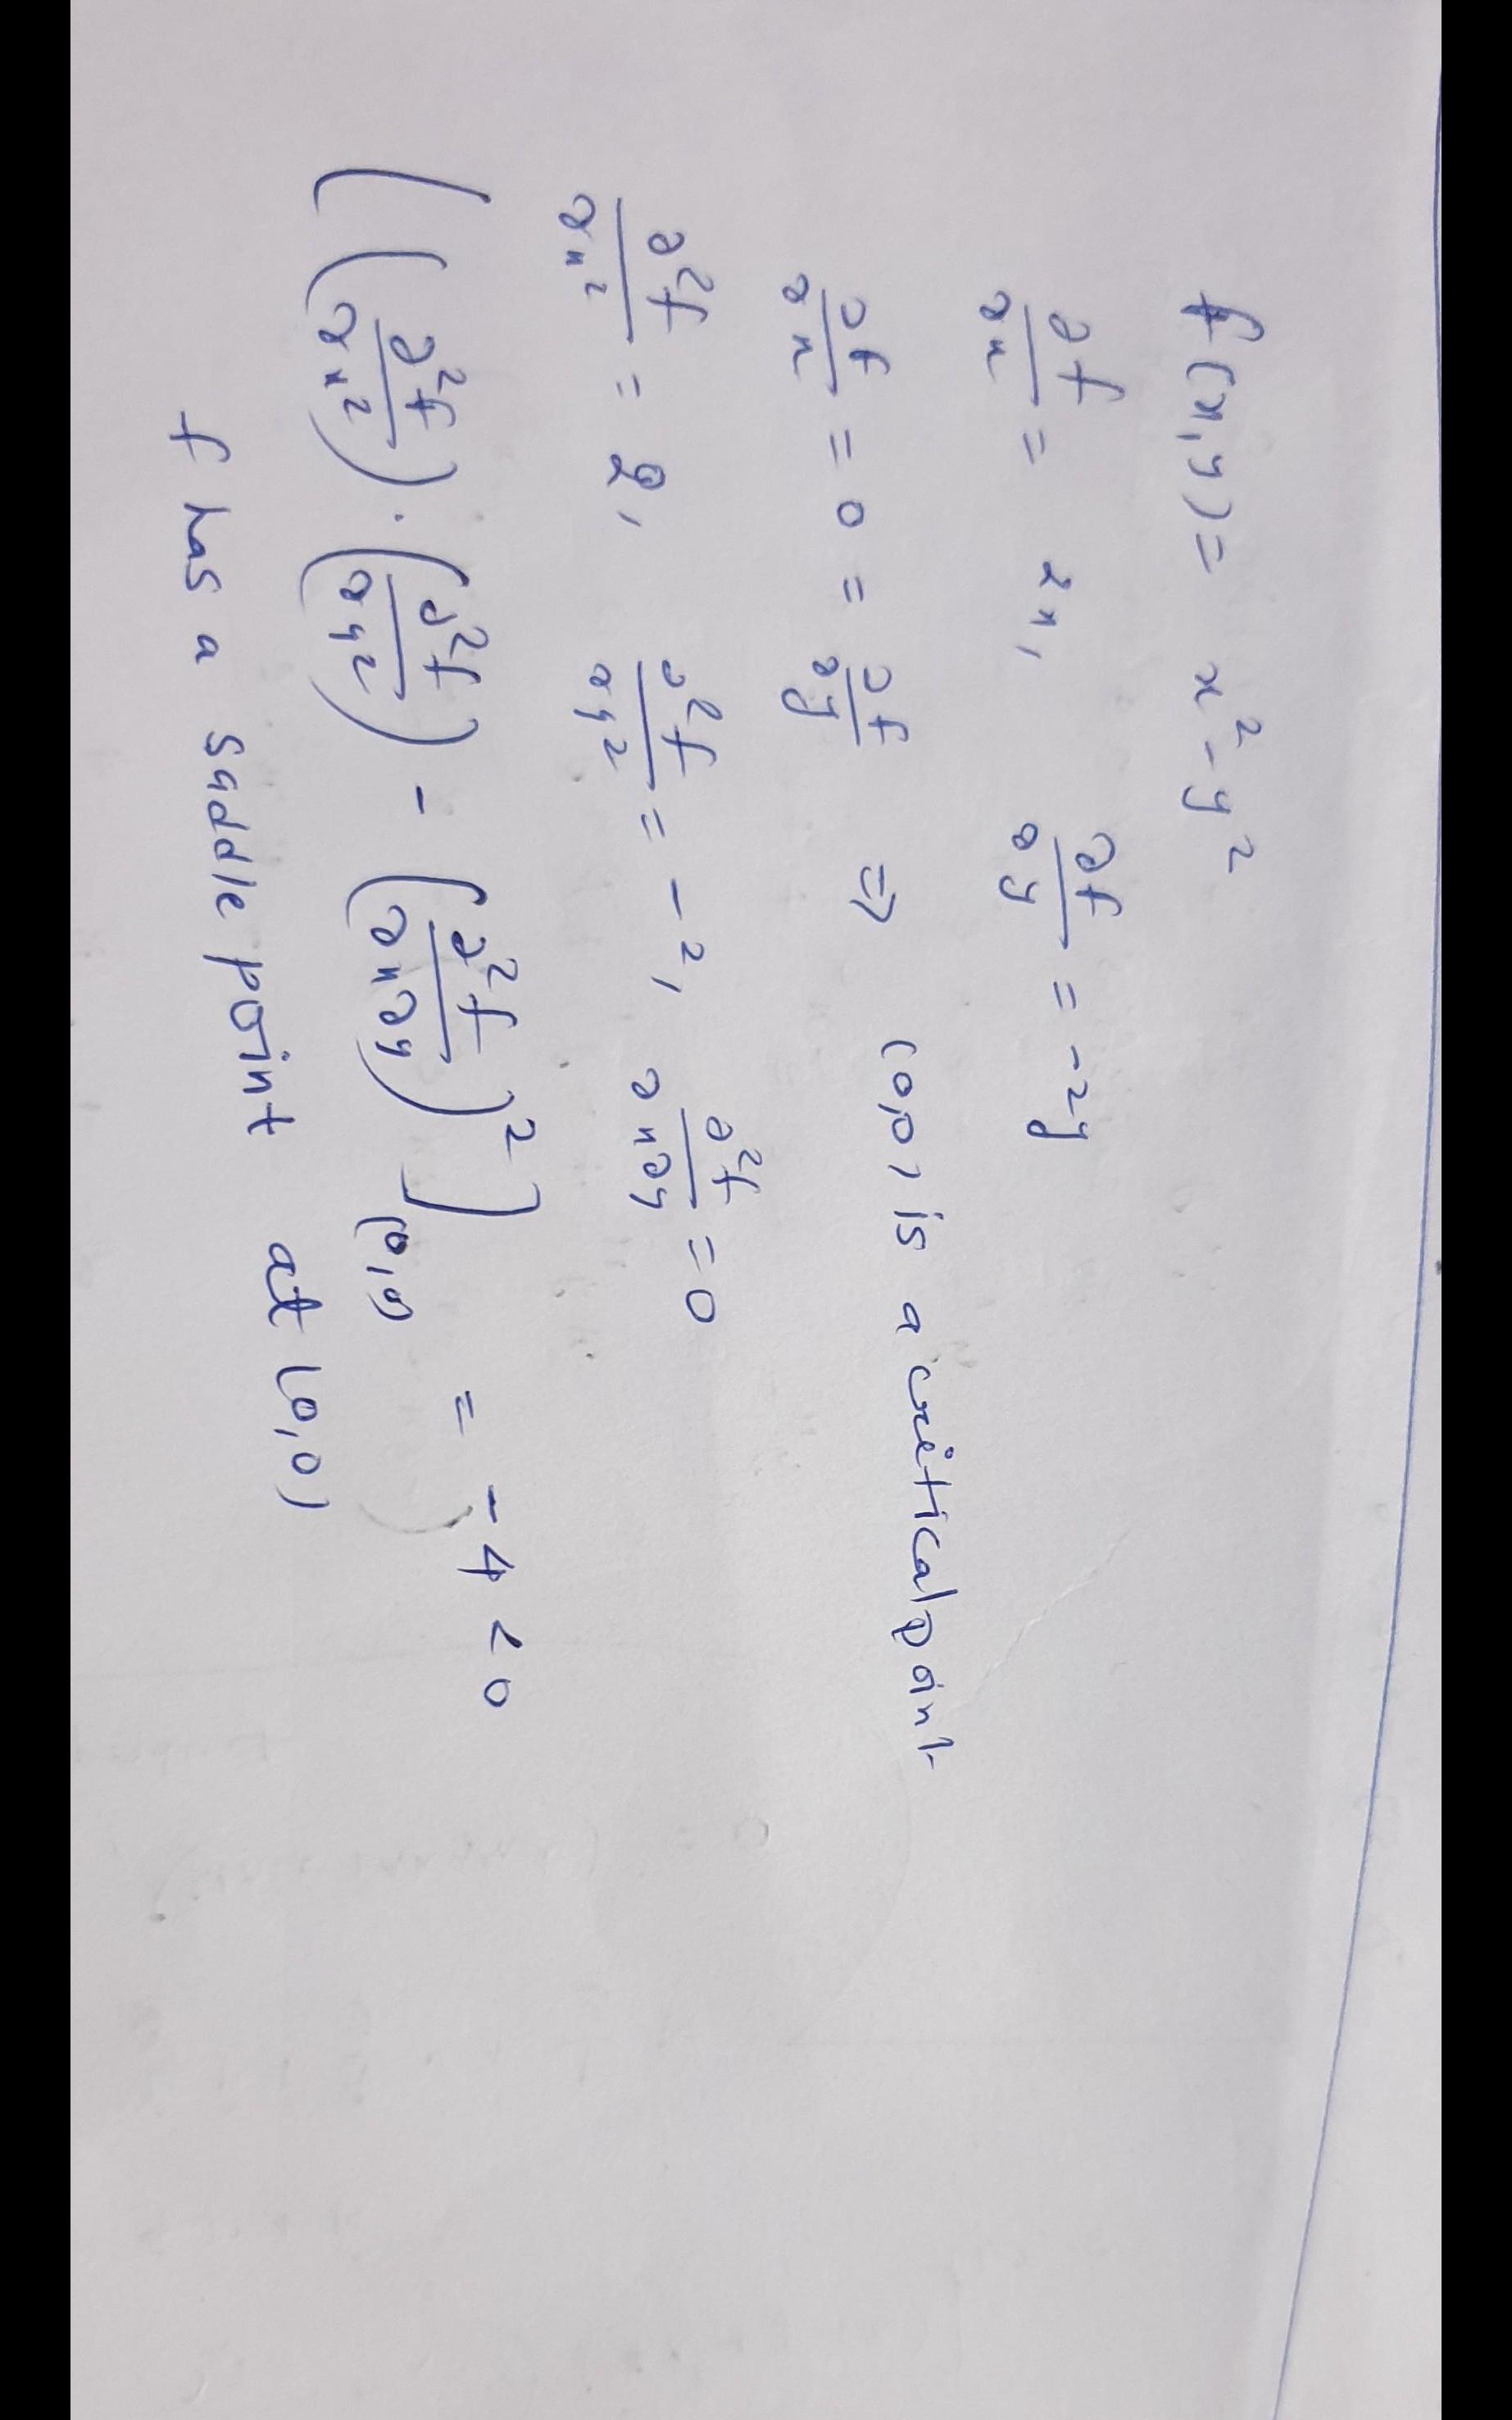 f(x,y) = x² - y²
∂f/∂x = 2x, ∂f/∂y = -2y
∂f/∂x = 0 = ∂f/∂y ⇒ (0,0) is a critical point
∂²f/∂x² = 2, ∂²f/∂y² = -2, ∂²f/∂x∂y = 0
[(∂²f/∂x²) · (∂²f/∂y²) - (∂²f/∂x∂y)²](0,0) = -4 < 0
f has a saddle point at (0,0)